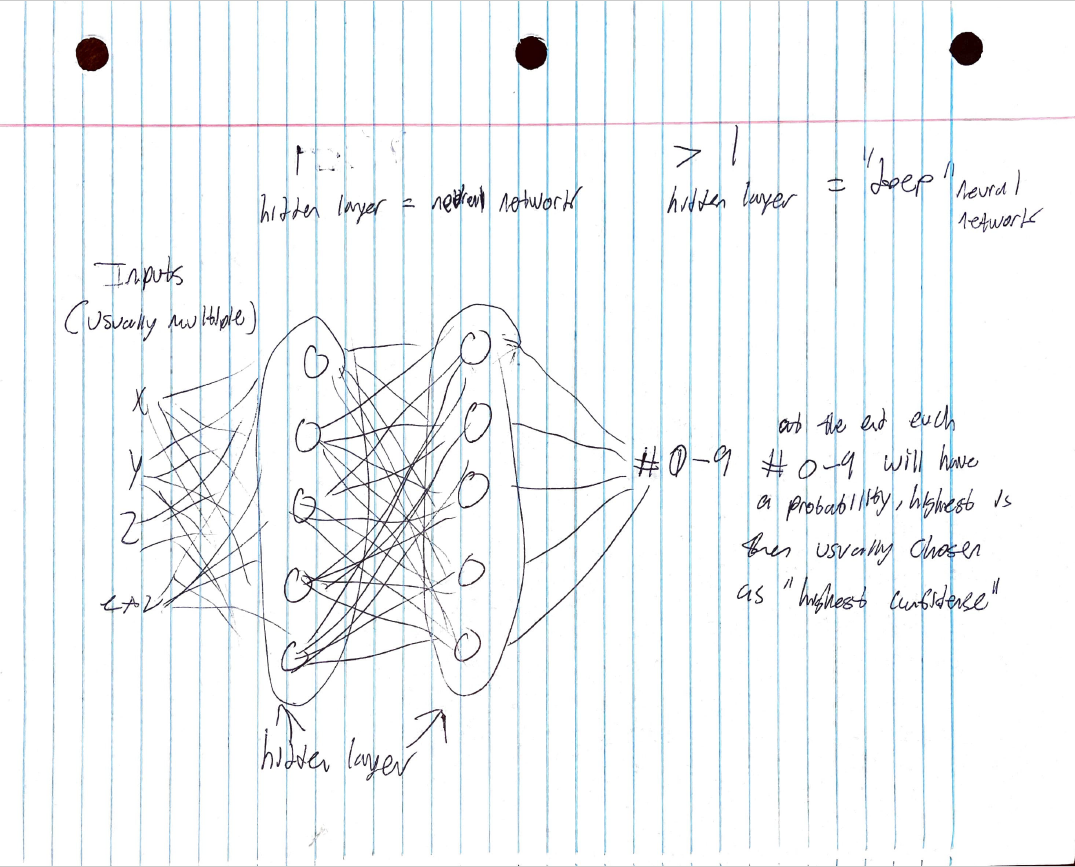 1
hidden layer = neural network
> 1
hidden layer = "deep" neural
network
Inputs
(usually multiple)
X
Y
Z
etc
hidden layer
# 0-9
at the end each
# 0-9 will have
a probability, highest is
then usually chosen
as "highest confidense"